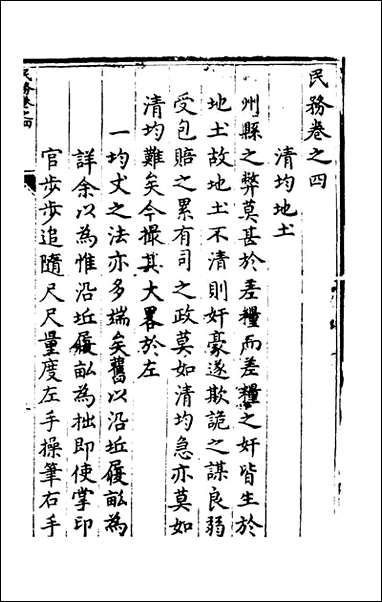 民務卷之四
清均地土
州縣之弊莫甚於差糧而差糧之奸皆生於
地土故地土不清則奸豪遂欺詭之謀良弱
受包賠之累有司之政莫如清均急亦莫如
清均難矣今撮其大畧於左
一均丈之法亦多端矣舊以沿坵履畝為
詳余以為惟沿坵履畝為拙即使掌印
官步步追隨尺尺量度左手操筆右手
民務卷之四